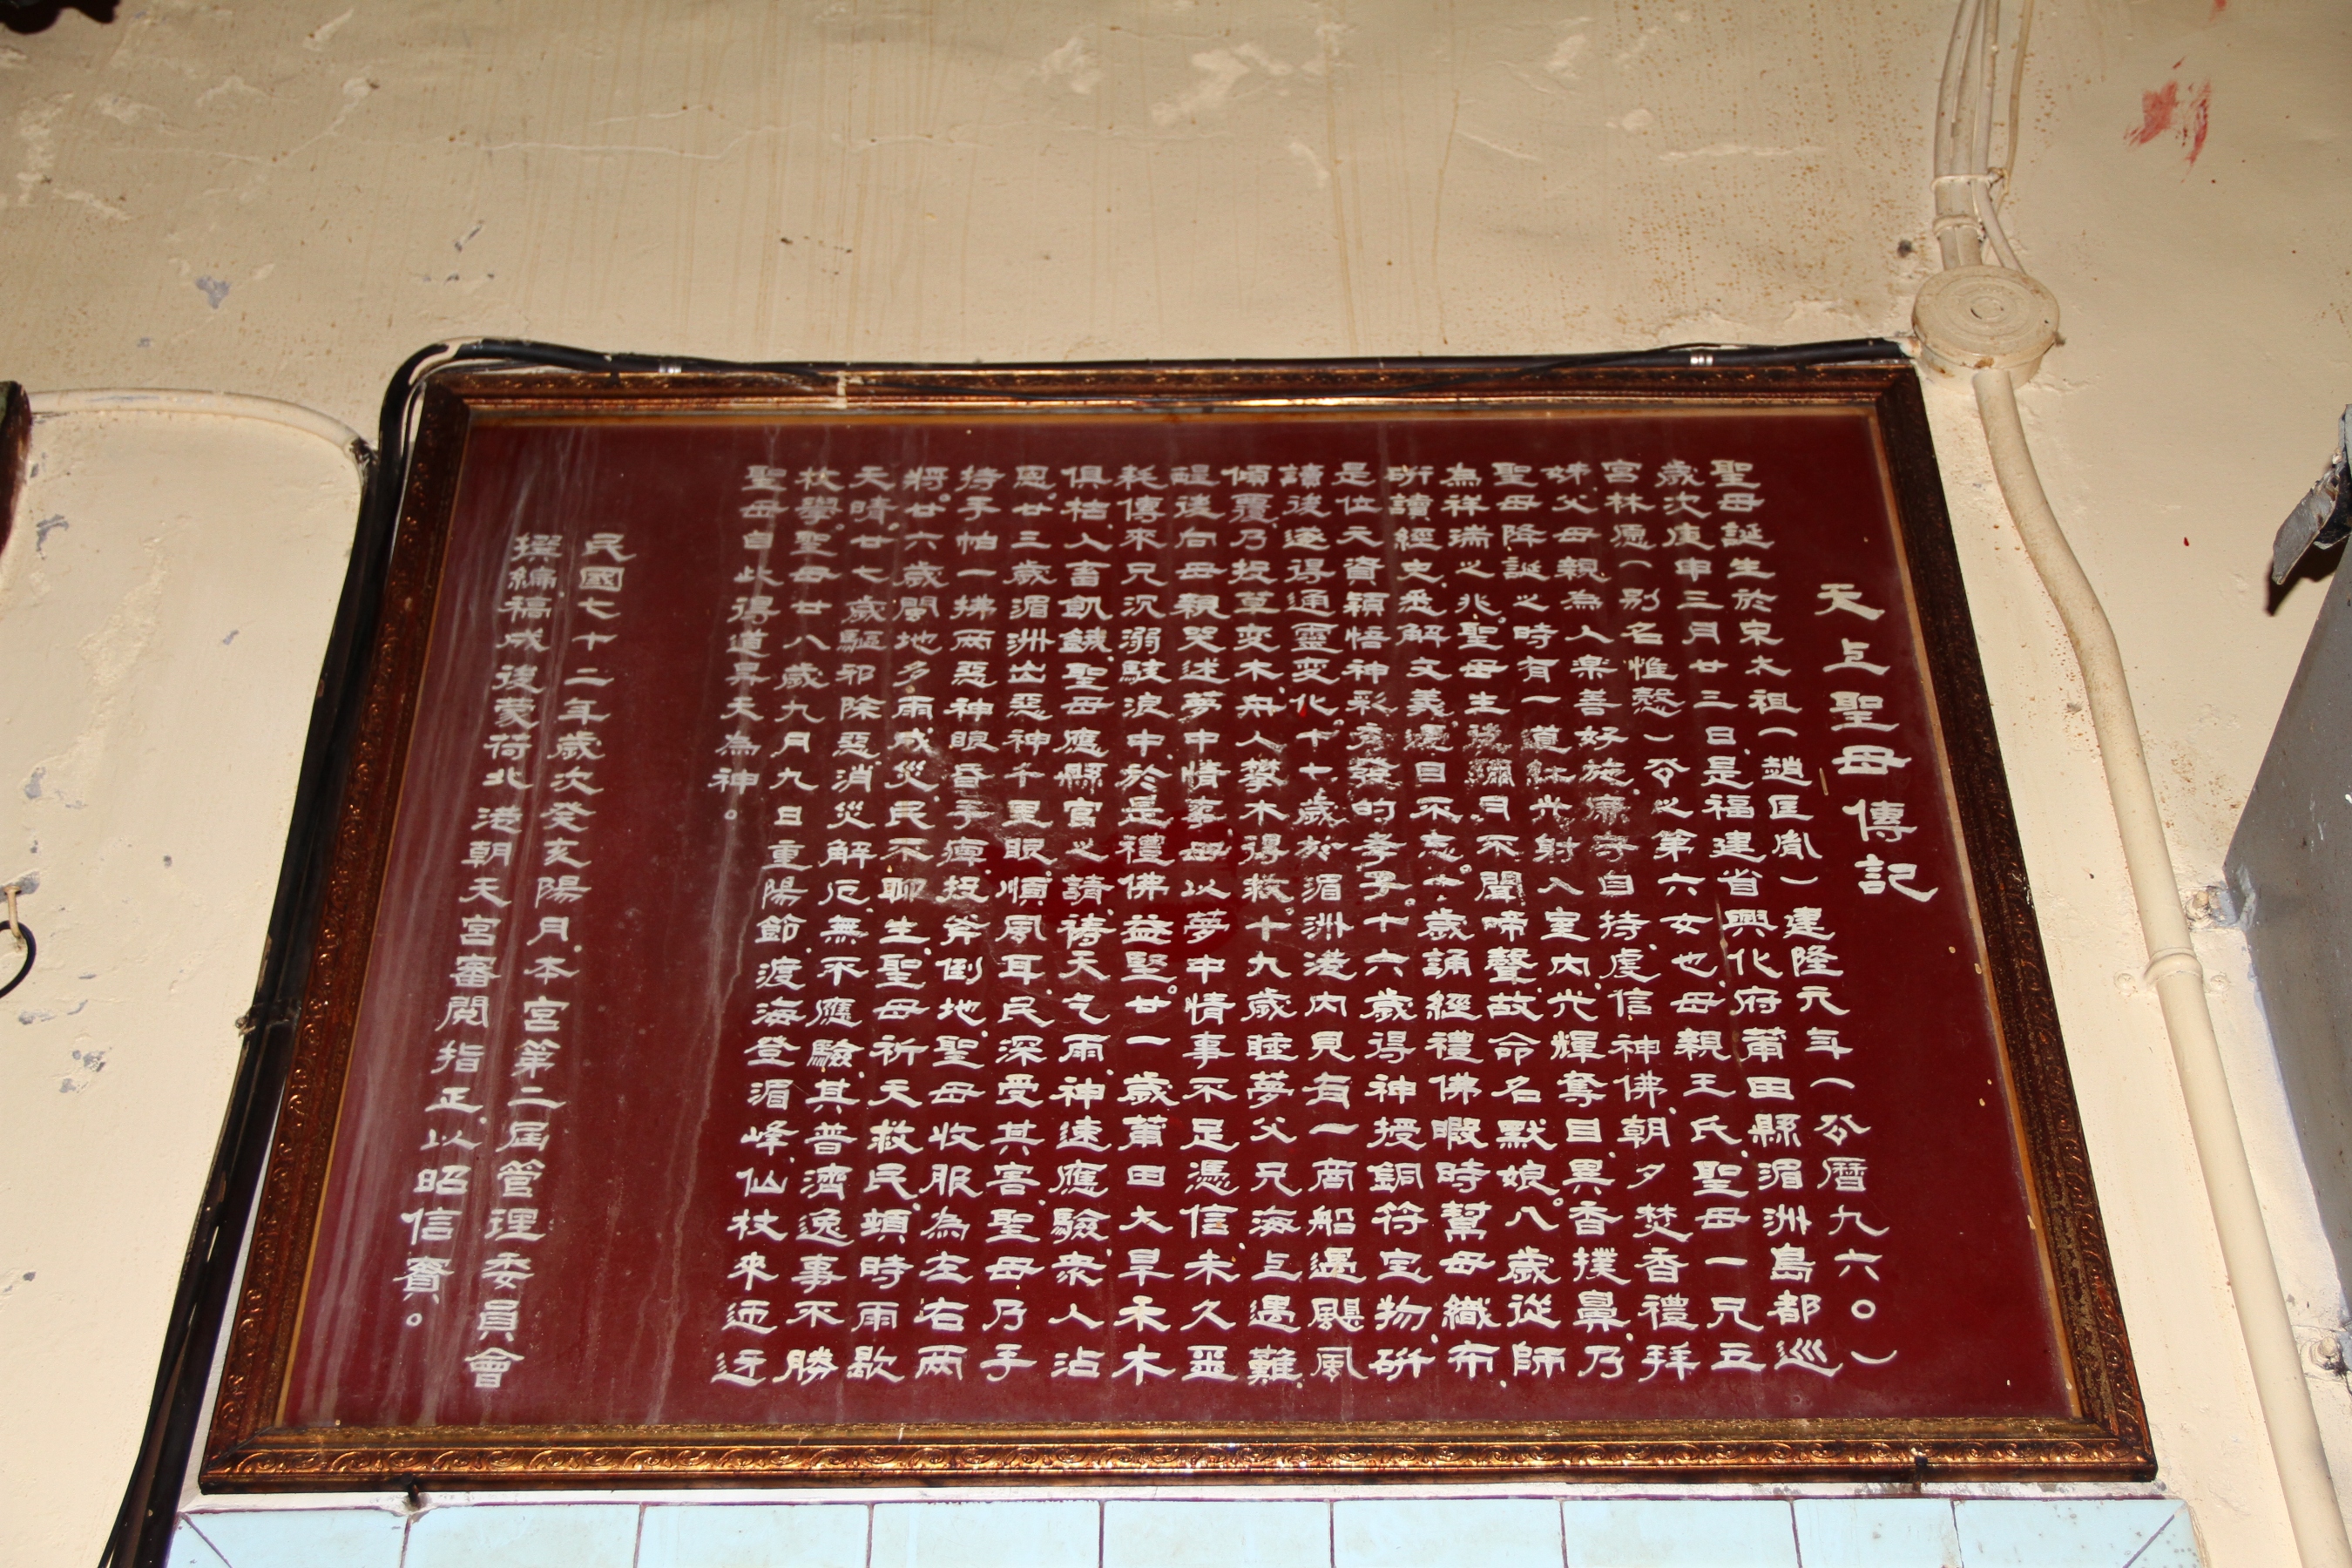 天上聖母傳記
聖母誕生於宋太祖(趙匡胤)建隆元年(公曆九六〇)
歲次庚申三月廿三日是福建省興化府莆田縣湄洲島都巡
宮林愿(別名惟愨)公之第六女也母親王氏聖母一兄五
姊父母親為人樂善好施 自持虔信神佛朝夕焚香禮拜
聖母降誕之時有一道 光射入室內光輝奪目異香撲鼻乃
為祥瑞之兆聖母生後彌月不聞啼聲故命名默娘。八歲從師
所讀經史悉解文義過目不忘。十歲誦經禮佛暇時幫母織布
是位天資穎悟神彩秀發的孝子。十六歲得神授銅符宝物研
讀後遂得通靈變化。十七歲於湄洲港內見有一商船遇颶風
傾覆乃投草變木舟人攀木得救。十九歲睡夢父兄海上遇難
醒後向母親哭述夢中情事母以夢中情事不足憑信未久噩
耗傳來兄沉溺駭浪中於是禮佛益堅。廿一歲莆田大旱禾木
俱枯人畜飢餓聖母應縣官之請禱天乞雨神速應驗眾人沾
恩。廿三歲湄洲出惡神千里眼順風耳民深受其害聖母乃手
持手帕一拂兩惡神眼昏手痺投斧倒地聖母收服為左右兩
將。廿六歲閩地多雨成災民不聊生聖母祈天救民頓時雨歇
天晴。廿七歲驅邪除惡消災解厄無不應驗其普濟逸事不勝
枚舉。聖母廿八歲九月九日重陽節渡海登湄峰仙杖來迎迓
聖母自此得道昇天為神。
民國七十二年歲次癸亥陽月本宮第二屆管理委員會
撰編稿成後蒙荷北港朝天宮審閱指正以昭信實。